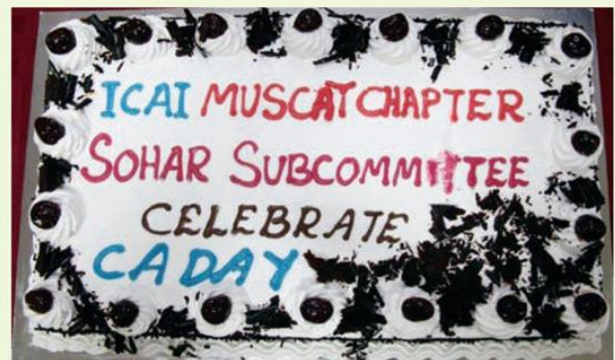 ICAI MUSCAT CHAPTER
SOHAR SUBCOMMITTEE
CELEBRATE
CA DAY